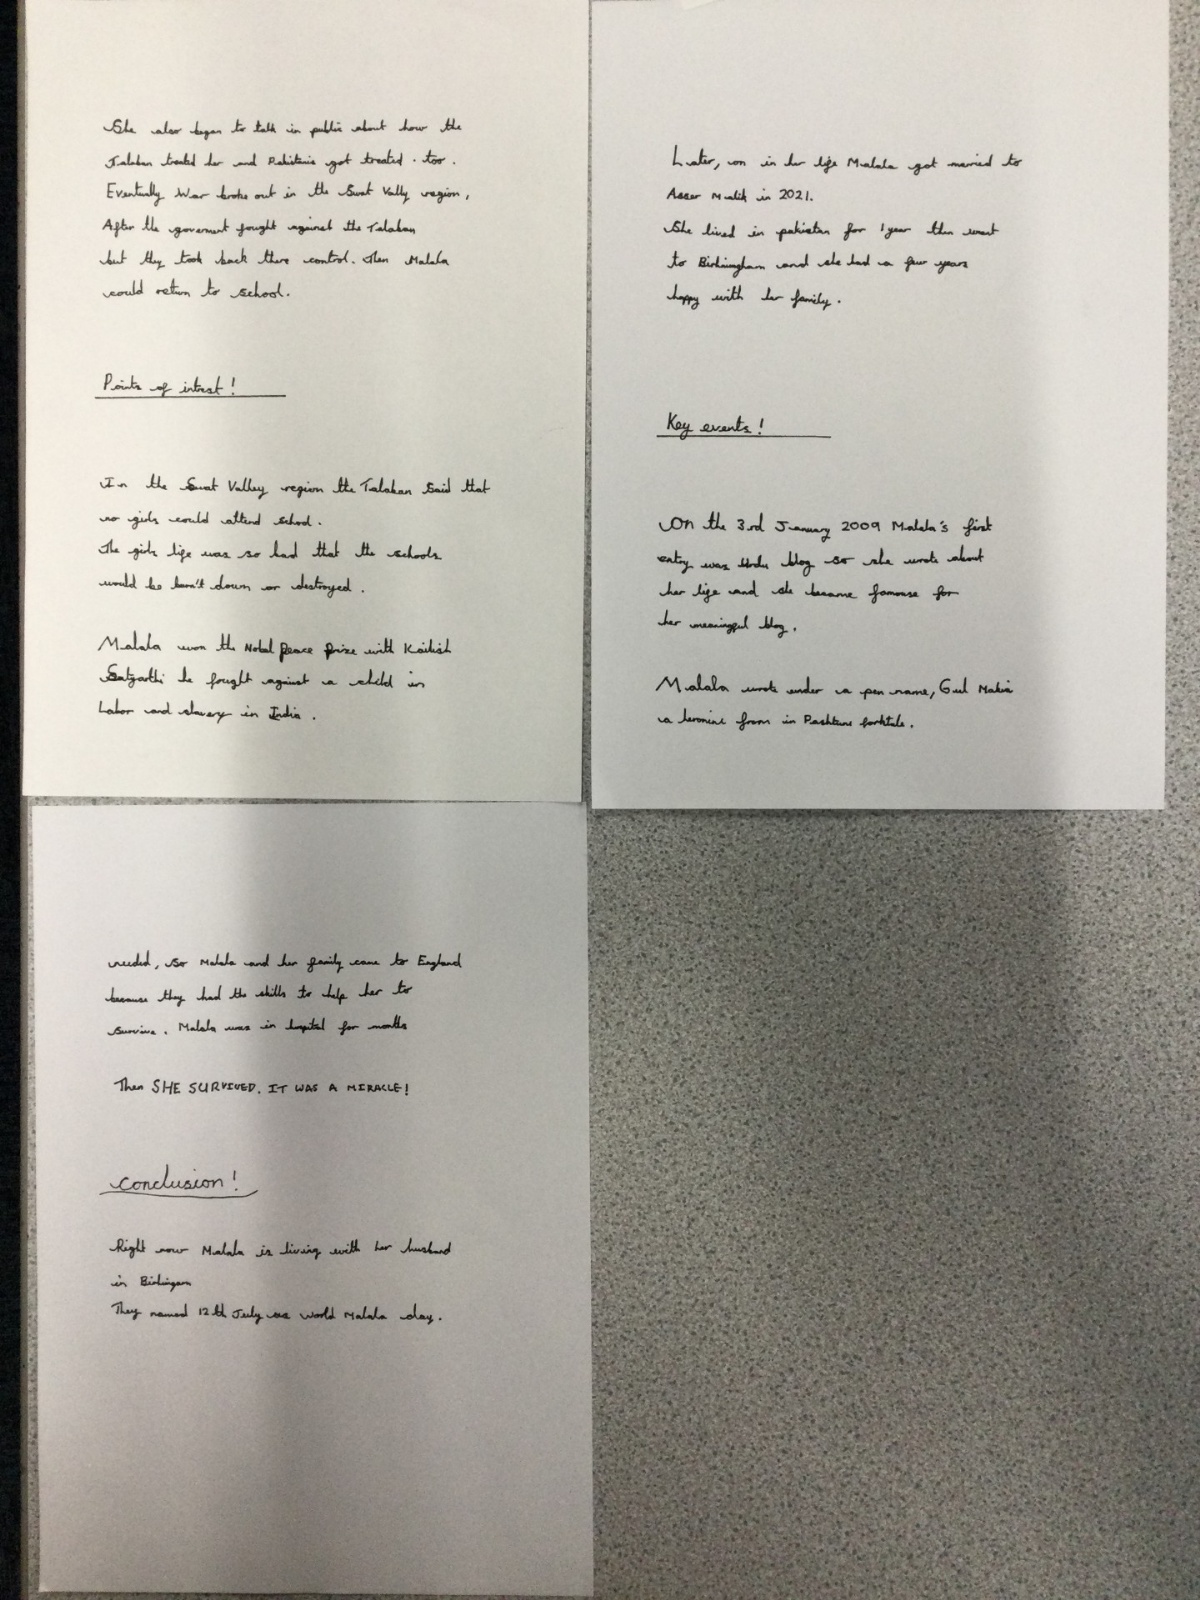 She also began to talk in public about how the
Talaban treated her and Pakistanis got treated. too.
Eventually War broke out in the Swat Vally region,
After the goverment fought against the Talaban
but they took back there control. Then Malala
could return to school.
Points of intrest!
In the Swat Valley region the Talaban said that
no girls could attend school.
The girls life was so bad that the schools
would be barn't down or destroyed.
Malala won the Nobel peace prize with Kailish
Satyarthi he fought against a child in
Labor and slavery in India.
Later, on in her life Malala got married to
Asser Malik in 2021.
She lived in pakistan for 1 year then went
to and she had a few years
happy with her family.
Key events!
On the 3rd January 2009 Malala's first
entry was Urdu blog so she wrote about
her life and she became famouse for
her meaningful blog.
Malala wrote under a pen name, Gul Makia
a from in Pashtune
needed, so Malala and her family came to England
because they had the skills to help her to
survive. Malala was in hospital for months
Then SHE SURVIVED. IT WAS A MIRACLE!
conclusion!
Right now Malala is living with her husband
in
They named 12th July as world Malala day.